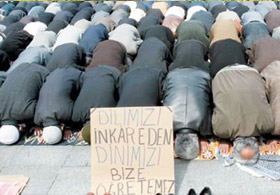 DİLİMİZİ
İNKAR EDEN
DİNİMİZİ
BİZE
ÖĞRETEMEZ